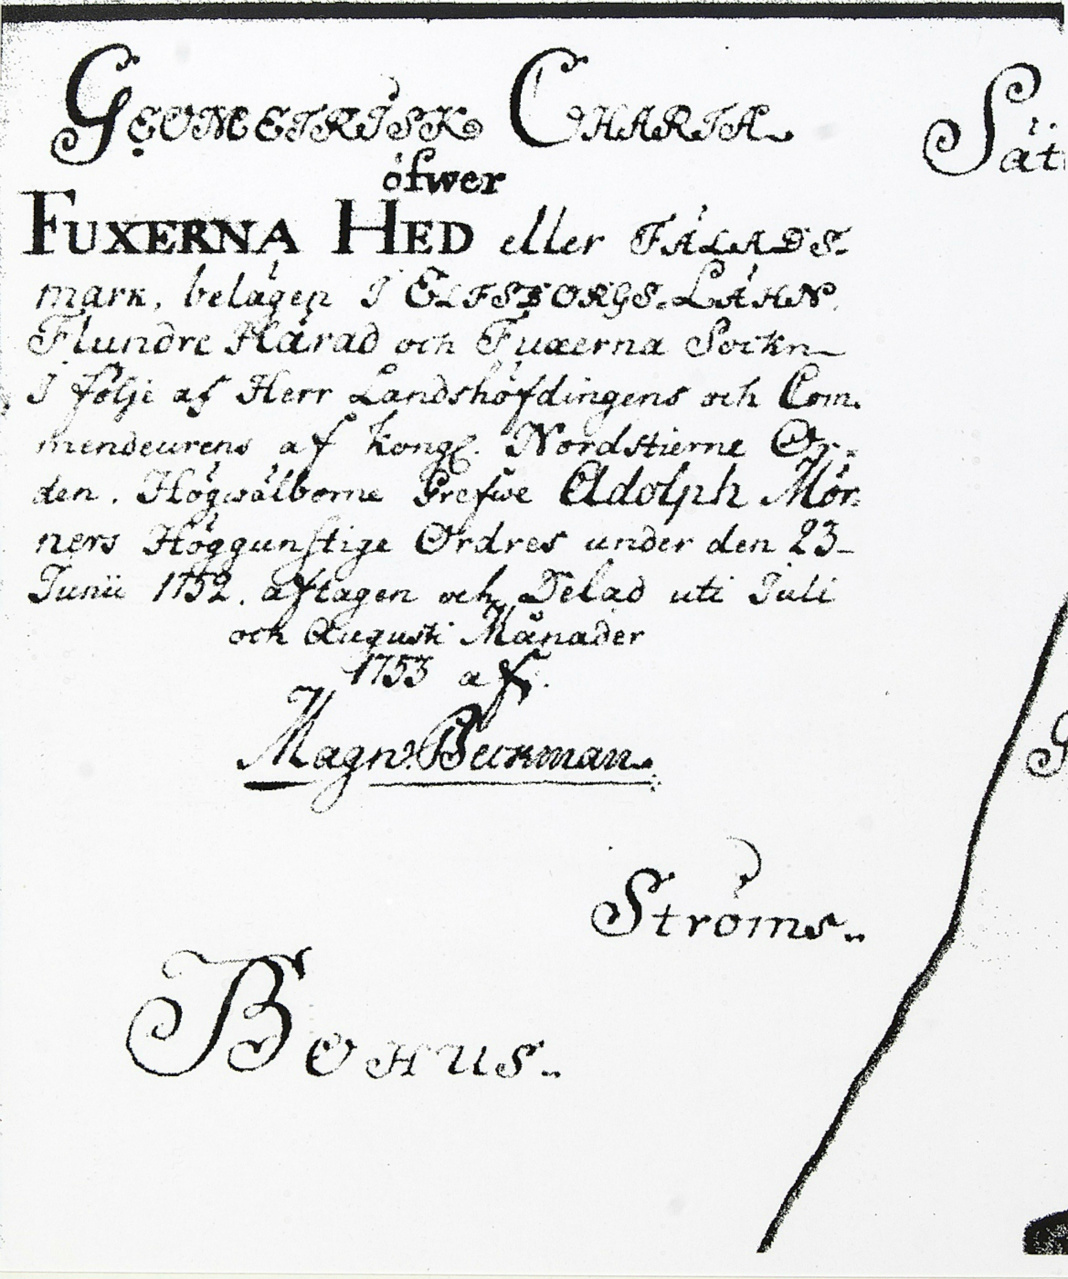 GEOMETRISK CHARTA
öfwer
FUXERNA HED eller FÄLADS-
mark, belägen I ELFSBORGS LÄHN
Flundre Härad och Fuxerna Sockn
I följe af Herr Landshöfdingens och Com-
mendeurens af kongl. Nordstierne Or-
den, Högwälborne Grefwe Adolph Mör-
ners Höggunstige Ordres under den 23
Junii 1752. aftagen och Delad uti Julii
och Augusti Månader
1753 af.
Magn: Beckman.
Sät
Ströms
BOHUS